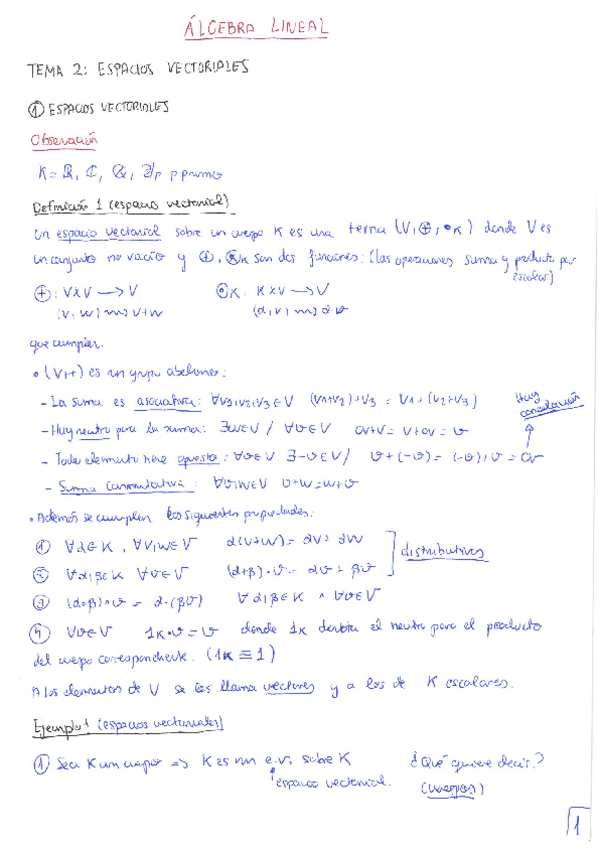 ÁLGEBRA LINEAL
TEMA 2: ESPACIOS VECTORIALES
① ESPACIOS VECTORIALES
Observación
K = ℝ, ℂ, ℚ, ℤ/p p primo
Definición 1 (espacio vectorial)
Un espacio vectorial sobre un cuerpo K es una terna (V, ⊕, •K) donde V es
un conjunto no vacío y ⊕, K son dos funciones: (las operaciones suma y producto por
escalar)
⊕: V×V → V ⊙K: K×V → V
(v, w) ⇝ v+w (α, v) ⇝ α·v
que cumplen:
• (V, +) es un grupo abeliano:
- La suma es asociativa: ∀v1,v2,v3 ∈ V (v1+v2)+v3 = v1+(v2+v3)
Hay
cancelación
- Hay neutro para la suma: ∀v∈V 0v+v = v+0v = v
- Todo elemento tiene opuesto: ∀v∈V ∃-v∈V / v+(-v) = (-v)+v = 0v
- Suma conmutativa: ∀v,w∈V v+w=w+v
• Además se cumplen las siguientes propiedades:
① ∀α∈K, ∀v,w∈V α(v+w) = αv + αw
distributivas
② ∀α,β∈K ∀v∈V (α+β)·v = αv + βv
③ (α·β)·v = α·(βv) ∀α,β∈K ∧ ∀v∈V
④ ∀v∈V 1K·v = v donde 1K denota el neutro para el producto
del cuerpo correspondiente. (1K ≡ 1)
A los elementos de V se les llama vectores y a los de K escalares.
Ejemplo 1 (espacios vectoriales)
① Sea K un cuerpo => K es un e.v. sobre K ¿Qué quiere decir?
espacio vectorial. (cuerpos)
1